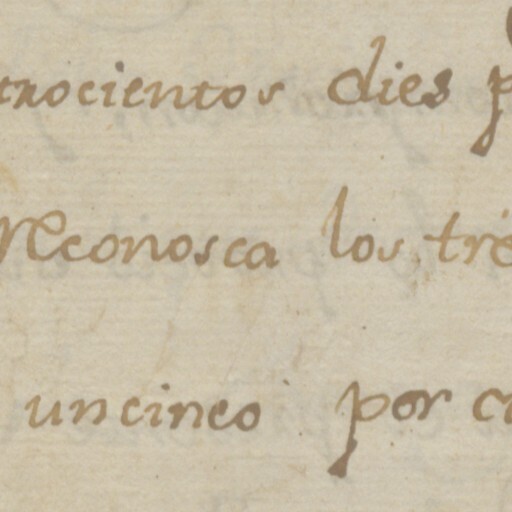 trocientos dies p
Reconosca los tre
un cinco por c